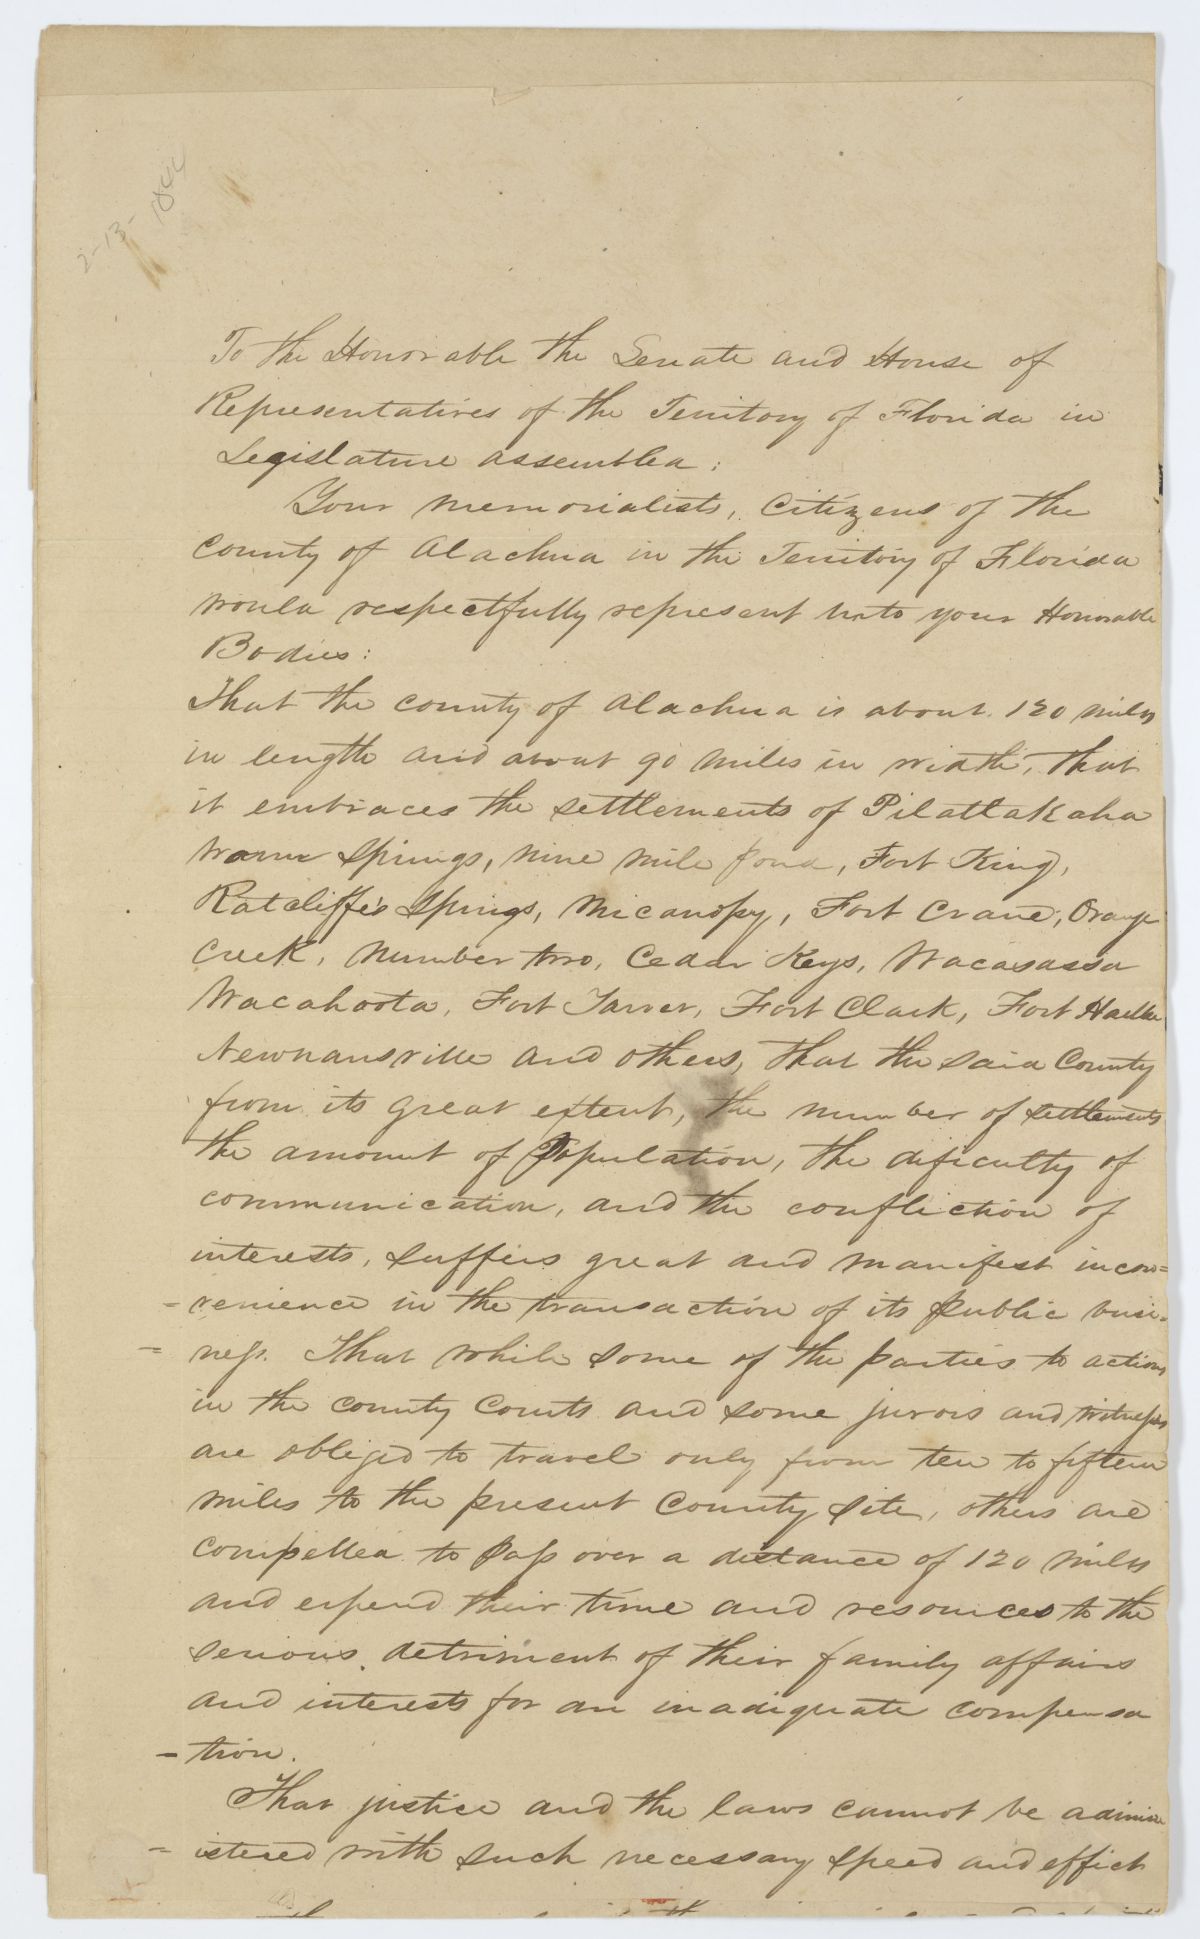 2-13-1844
To the Honorable the Senate and House of
Representatives of the Territory of Florida in
Legislature assembled:
Your memorialists, Citizens of the
County of Alachua in the Territory of Florida
would respectfully represent unto your Honorable
Bodies:
That the county of Alachua is about 120 miles
in length and about 90 miles in width, that
it embraces the settlements of Pilatlakaha
Warm Springs, nine mile pond, Fort King,
Ratcliffe's Springs, Micanopy, Fort Crane, Orange
Creek, Number two, Cedar Keys, Wacasassa
Wacahoota, Fort Tarver, Fort Clark, Fort Harlee
Newnansville and others, that the said County
from its great extent, the number of settlements
the amount of Population, the dificulty of
communication, and the confliction of
interests, suffers great and manifest incon=
=venience in the transaction of its public busi-
=ness. That while some of the parties to actions
in the county Courts and some jurors and witnesses
are obliged to travel only from ten to fifteen
miles to the present County site, others are
compelled to pass over a distance of 120 miles
and expend their time and resources to the
serious detriment of their family affairs
and interests for an inadiquate compensa
-tion.
That justice and the laws cannot be admin
=istered with such necessary speed and effect